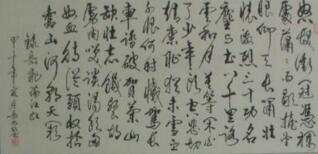 怒髮衝冠憑欄
處瀟瀟雨歇抬望
眼仰天長嘯壯
懷激烈三十功名
塵與土八千里路
雲和月莫等閒白
了少年頭空悲切
靖康恥猶未雪臣
子恨何時滅駕長
車踏破賀蘭山
缺壯志飢餐胡
虜肉笑談渴飲匈
奴血待從頭收拾
舊山河朝天闕
錄岳飛滿江紅